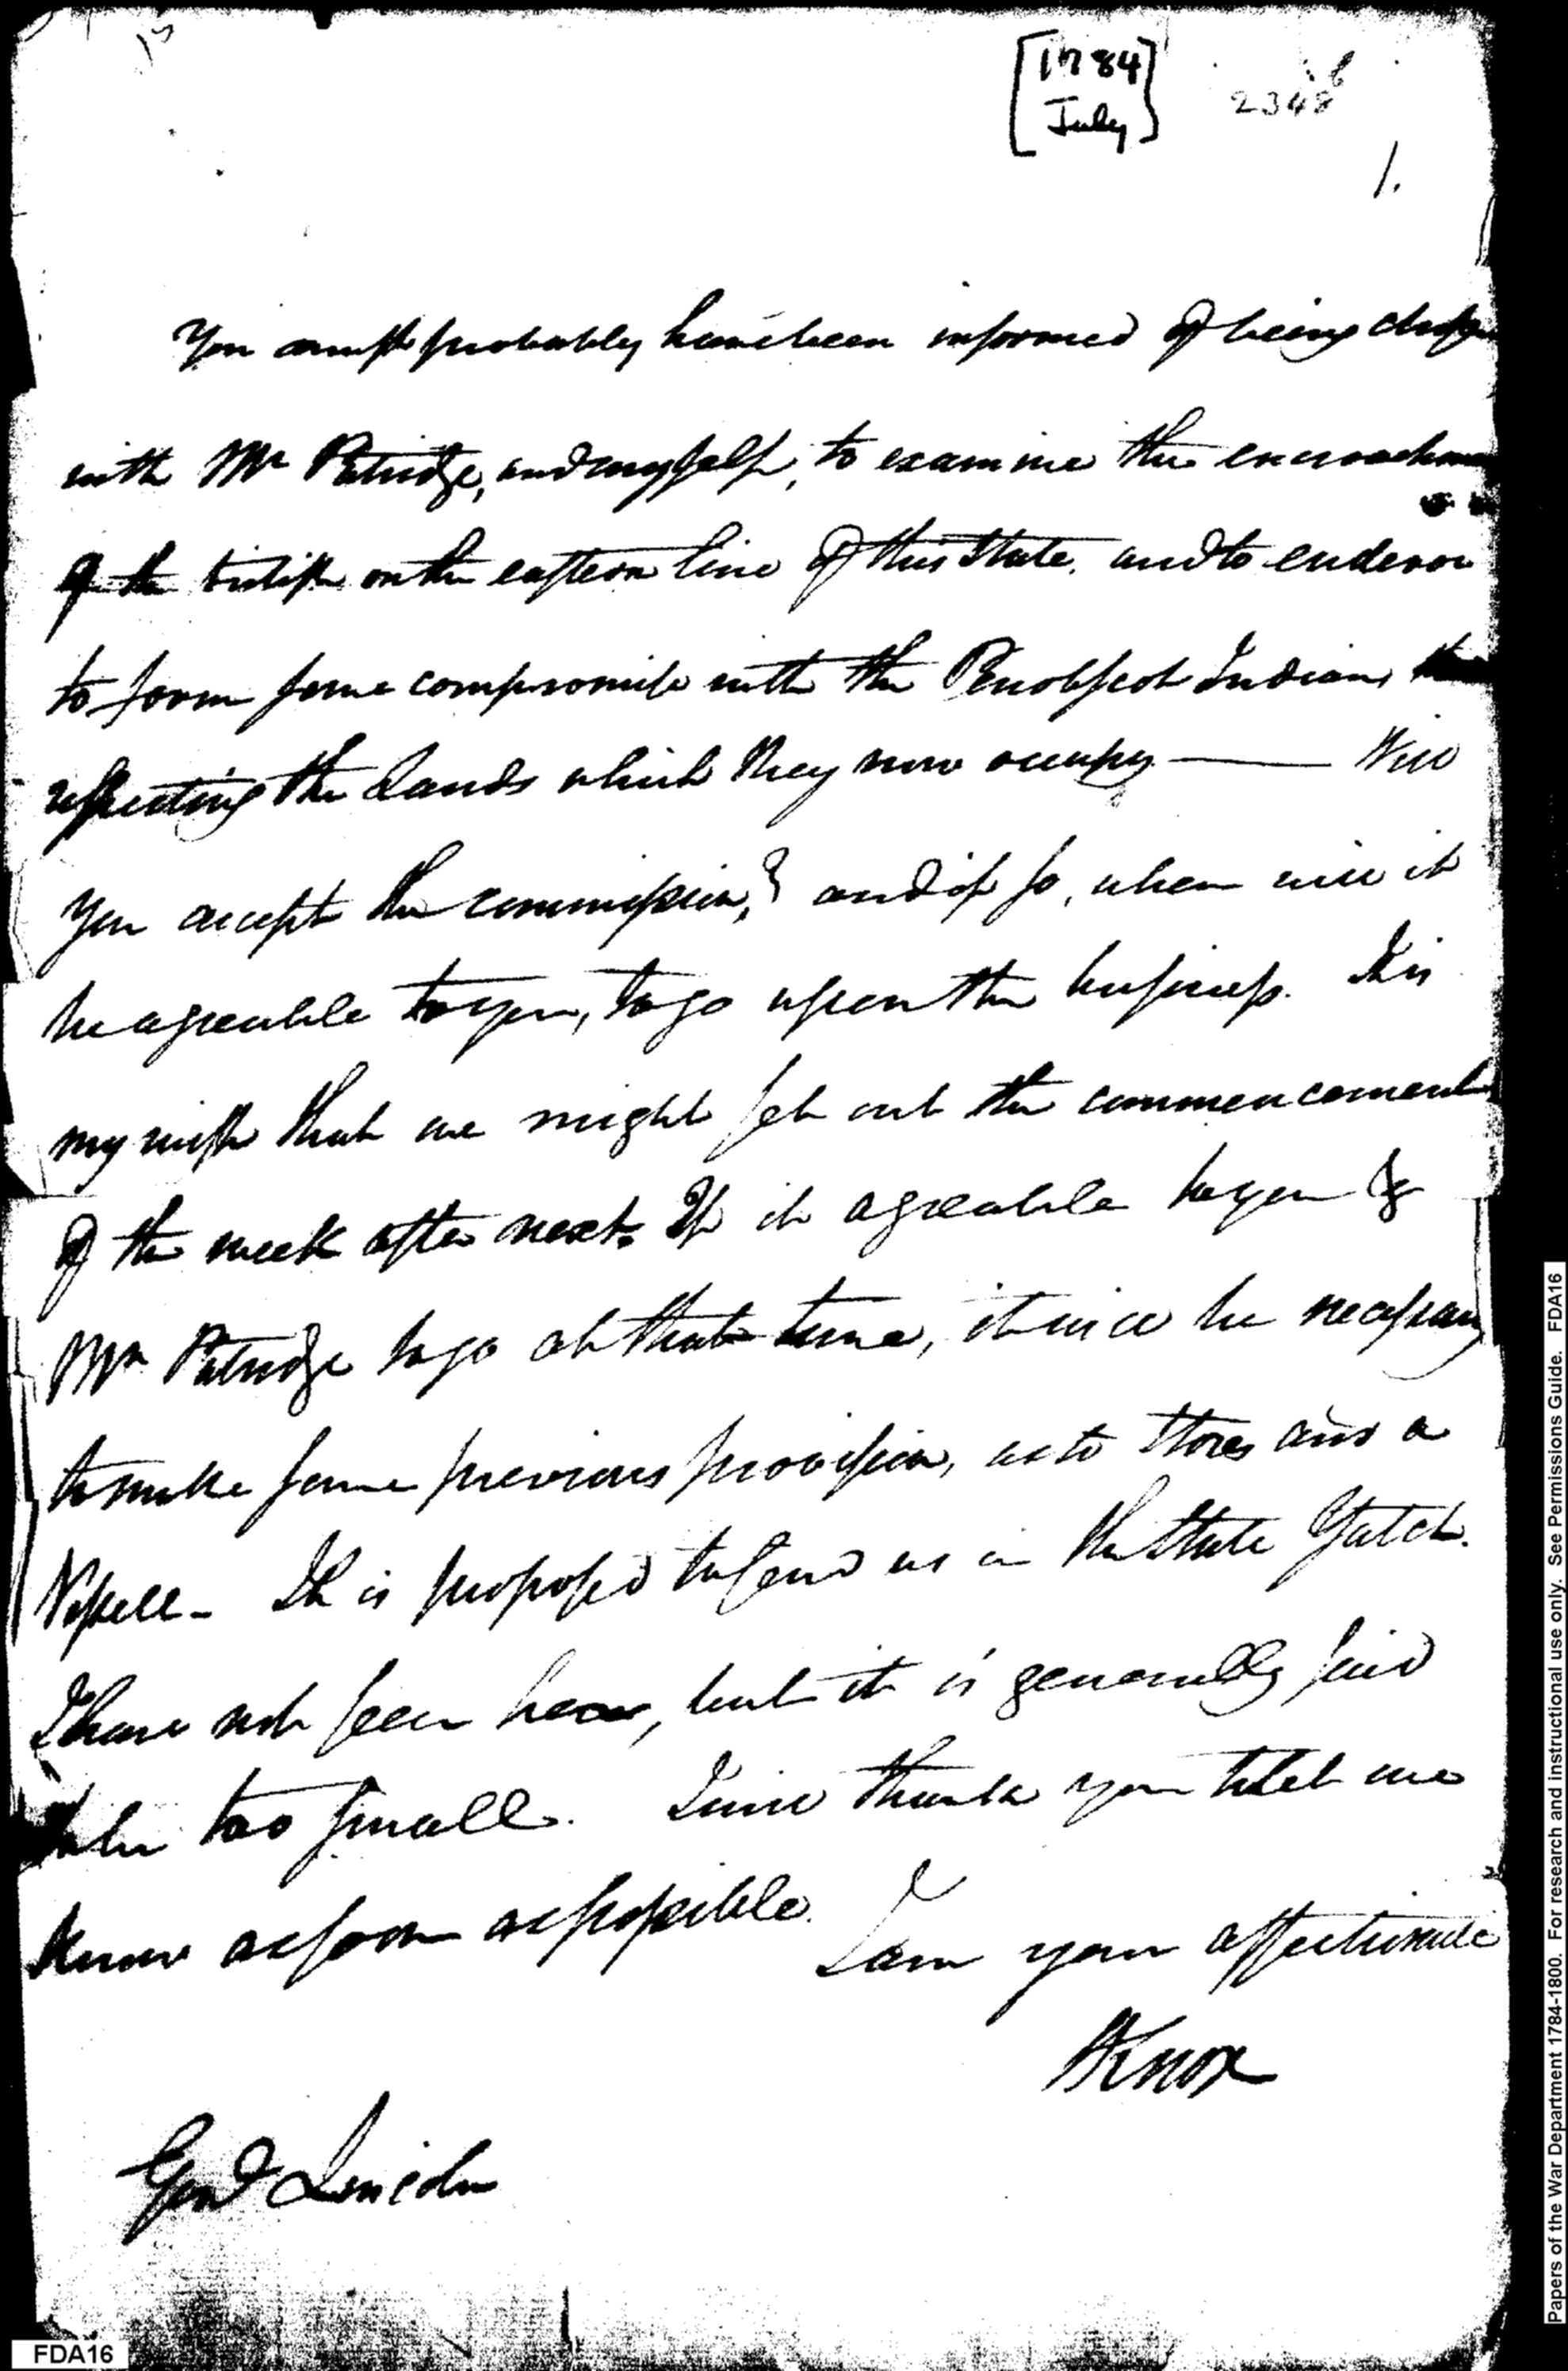 [1784
July]
2348
1.
You must probably have been informed of being
with Mr Patridge, and myself, to examine the
of the british on the eastern line of this State. and to endevor
to form some compromise with the Penobscot Indians
respecting the Lands which they now occupy — Will
you accept the commission,? and if so, when will it
be agreable to you, to go upon the business. It is
my wish that we might set out the commencement
of the week after next. If it agreable to you &
Mr Patridge to go at that time, it will be necessary
to make some previous provision, as to Stores and a
Vessell - It is proposed to send us in the State Yatch.
I have not seen her, but it is generally said
to be too small. I will thank you to let me
know as soon as possible.
I am your affectionate
HKnox
Genl Lincoln
FDA16
Papers of the War Department 1784-1800. For research and instructional use only. See Permissions Guide. FDA16